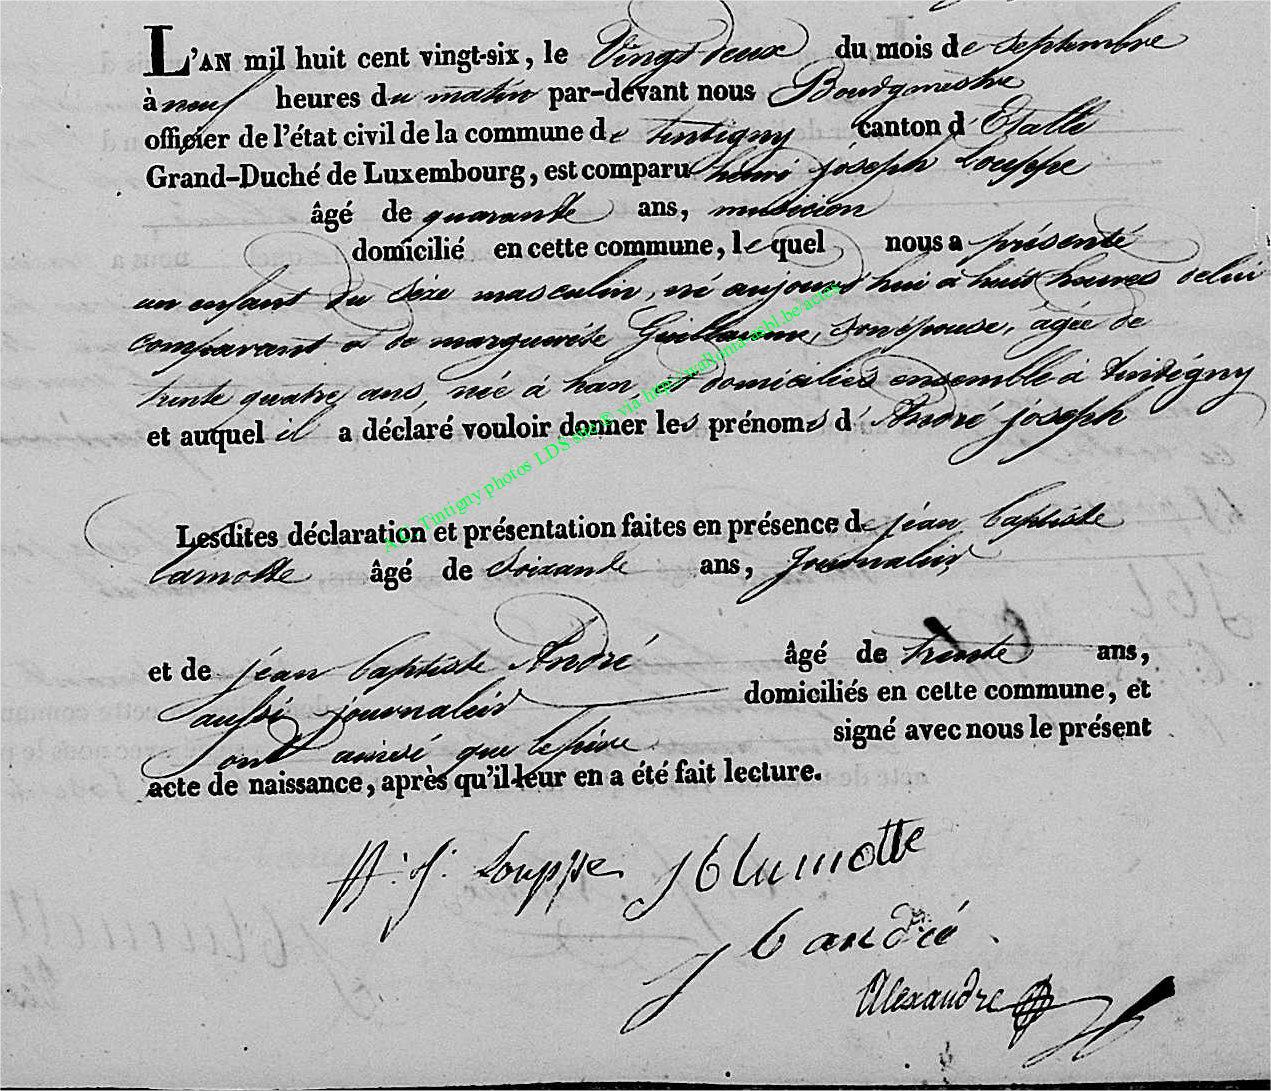 L'AN mil huit cent vingt-six, le Vingt deux du mois de septembre
à neuf heures du matin par-devant nous Bourgmestre
officier de l'état civil de la commune de tintigny canton d'Etalle
Grand-Duché de Luxembourg, est comparu henri joseph Louppe
âgé de quarante ans, musicien
domicilié en cette commune, le quel nous a présenté
un enfant du sexe masculin, né aujourd'hui à huit heures de lui
comparant et de marguerite Guillaume, son épouse, agée de
trente quatre ans, née à han, et domiciliés ensemble à tintigny
et auquel il a déclaré vouloir donner les prénoms d'André joseph
Lesdites déclaration et présentation faites en présence de jéan baptiste
lamotte âgé de soixante ans, journalier
et de jéan baptiste André âgé de trente ans,
aussi journalier domiciliés en cette commune, et
ont ainsi que le père signé avec nous le présent
acte de naissance, après qu'il leur en a été fait lecture.
H: J: Louppe J b lamotte
J b andré
Alexandre
Tintigny photos LDS © via http://wallonia-asbl.be/actes